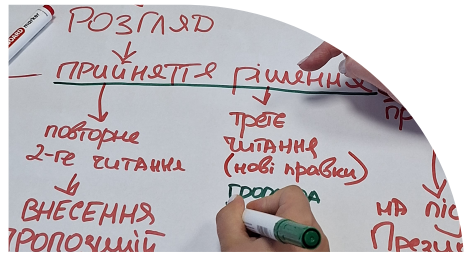 РОЗГЛЯД
ПРИЙНЯТТЯ РІШЕННЯ
повторне
2-ге читання
ВНЕСЕННЯ
ПРОПОЗИЦІЙ
третє
читання
(нові правки)
на
marker